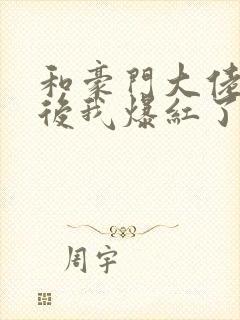 和豪門大佬
後我爆紅了
周宇